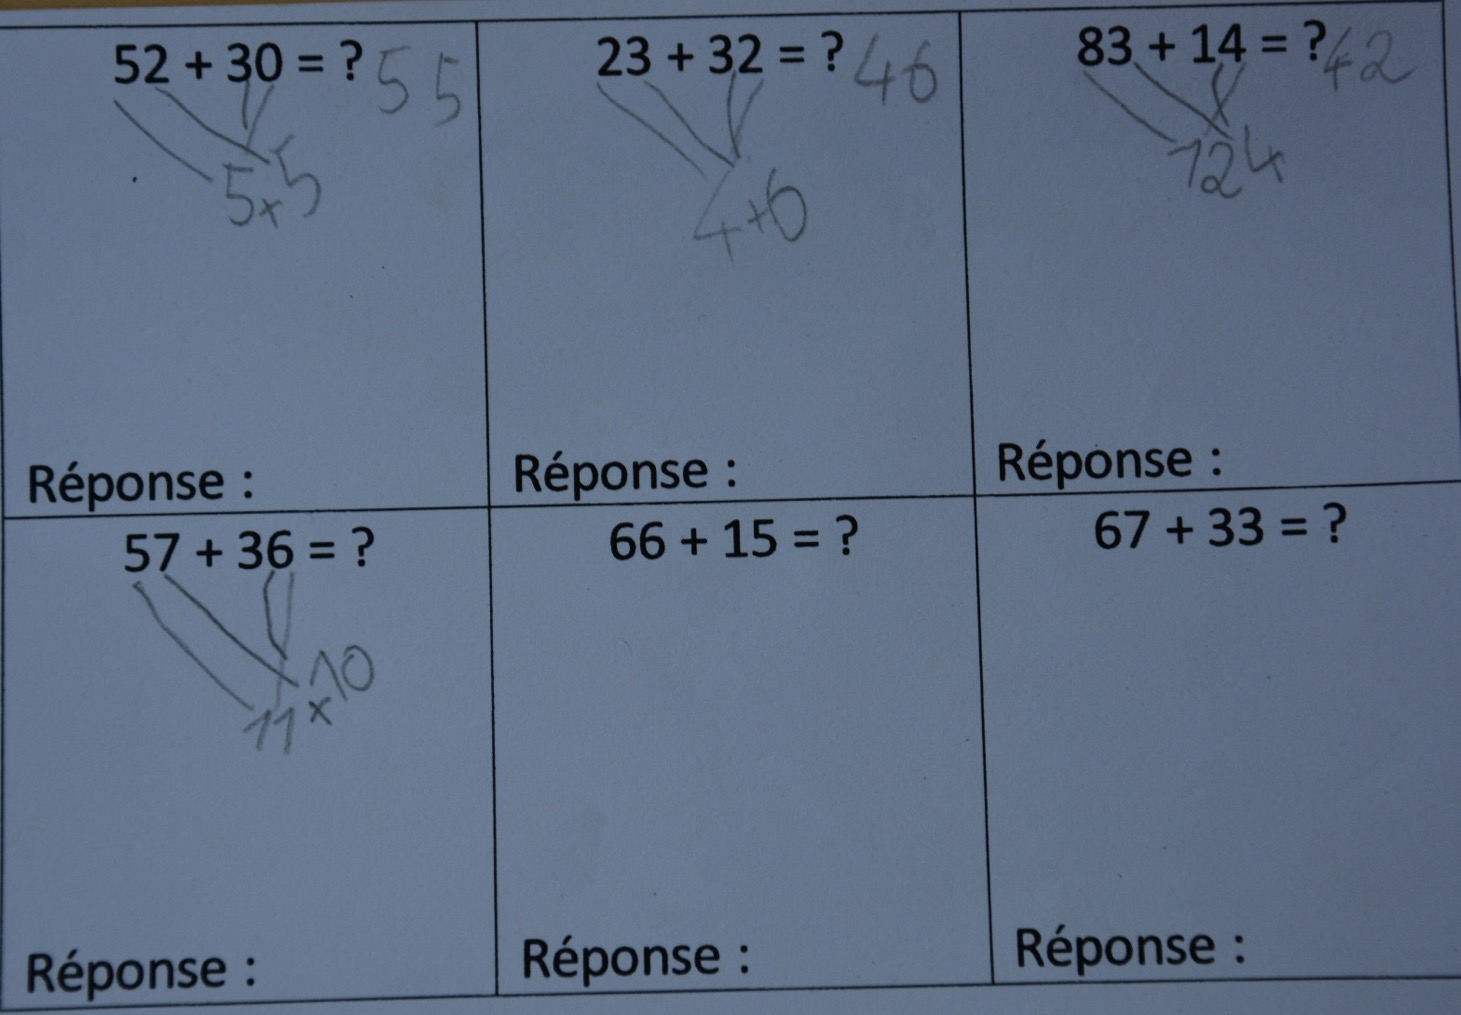 52 + 30 = ? 55
5x5
Réponse :
23 + 32 = ? 46
4+6
Réponse :
83 + 14 = ? 42
124
Réponse :
57 + 36 = ?
10
11 x
Réponse :
66 + 15 = ?
Réponse :
67 + 33 = ?
Réponse :